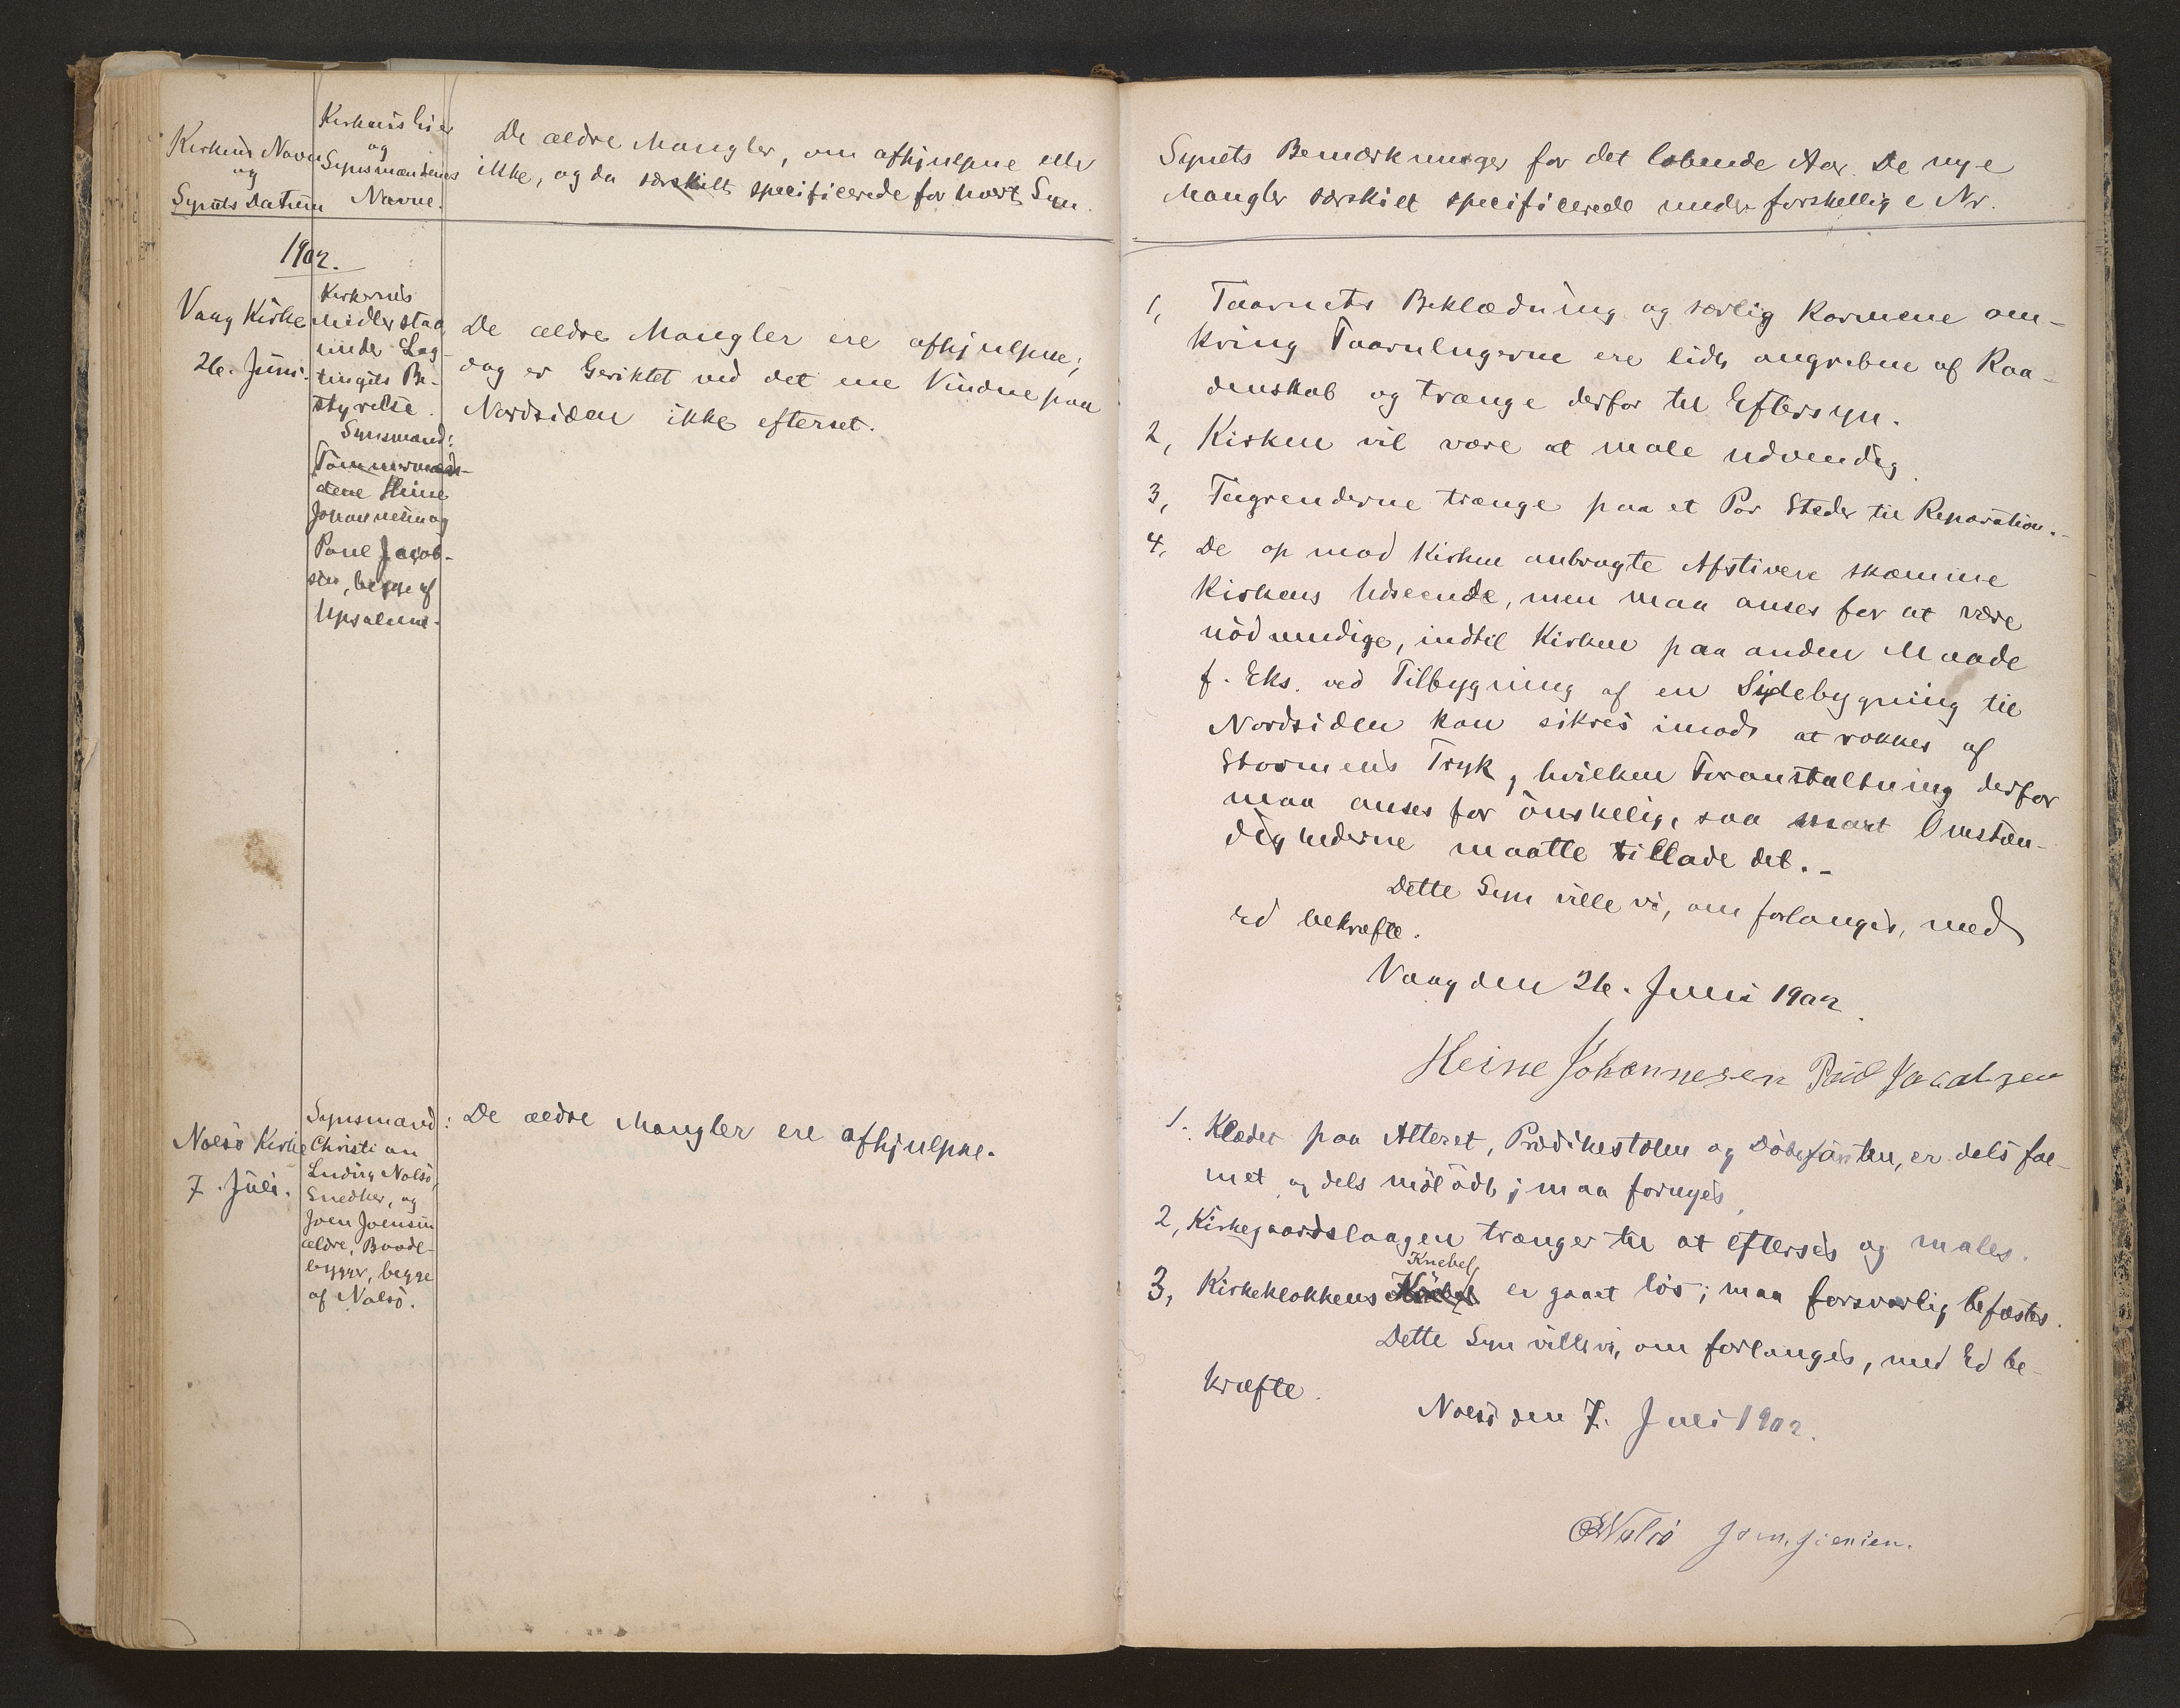 Kirkens Navn
og
Synets Datum
Kirkens Eier
og
Synsmændenes
Navne.
De ældre Mangler, om afhjulpne eller
ikke, og da særskilt specificerede for hvert Syn.
1902.
Vaag Kirke
26. Juni.
Kirkernes
Midler staa
under Lag-
tingets Be-
styrelse.
Synsmænd:
Tømmermæn-
dene Heine
Johannesen og
Poul Jacob-
sen, begge af
De ældre Mangler ere afhjulpne;
dog er Geriktet ved det ene Vindue paa
Nordsiden ikke efterset.
Nolsø Kirke
7. Juli.
Synsmænd:
Christian
Ludvig Nolsø,
Snedker, og
Joen Joensen
ældre, Baade-
bygger, begge
af Nolsø.
De ældre Mangler ere afhjulpne.
Synets Bemærkninger for det løbende Aar. De nye
Mangler særskilt specificerede under forskellige Nr.
1, Taarnets Beklædning og særlig Karmene om-
kring Taarnlugerne ere lidt angrebne af Raa-
denskab og trænge derfor til Eftersyn.
2, Kirken vil være at male udvendig.
3, Tagrenderne trænge paa et Par Steder til Reparation.-
4, De op mod Kirken anbragte Afstivere skæmme
Kirkens Udseende, men maa anses for at være
nødvendige, indtil Kirken paa anden Maade
f. Eks. ved Tilbygning af en Sidebygning til
Nordsiden kan sikres imod at rokkes af
Stormens Tryk, hvilken Foranstaltning derfor
maa anses for ønskelig, saa snart Omstæn-
dighederne maatte tillade det.-
Dette Syn ville vi, om forlanges, med
Ed bekræfte.
Vaag den 26. Juni 1902.
Heine Johannesen Poul Jacobsen
1. Klædet paa Alteret, Prædikestolen og Døbefonten, er dels fal-
met og dels mølædt; maa fornyes.
2, Kirkegaardslaagen trænger til at efterses og males.
3, Kirkeklokkens Knebel er gaaet løs; maa forsvarlig befæstes.
Dette Syn ville vi, om forlanges, med Ed be-
kræfte.
Nolsø den 7. Juli 1902.
Nolsø Joen Joensen.